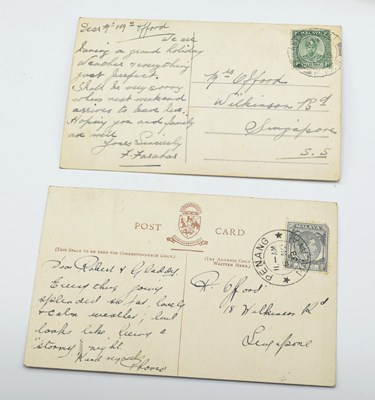 Dear Mr & Mrs Offord
We are
having a grand holiday
Weather & everything
just perfect.
Shall be very sorry
when next weekend
arrives to leave here.
Hoping you and family
are well
Yours Sincerely
F. Farahar
MALAYA
Mrs Offord
Wilkinson Rd
Singapore
S.S
POST CARD
(THIS SPACE TO BE USED FOR CORRESPONDENCE ONLY.)
(THE ADDRESS ONLY TO BE WRITTEN HERE.)
PENANG
MALAYA
Dear Robert & Gladdy
Everything going
splendid so far, lovely
& calm weather; but
looks like being a
"stormy" night
Kind regards
R. Offord
18 Wilkinson Rd
Singapore